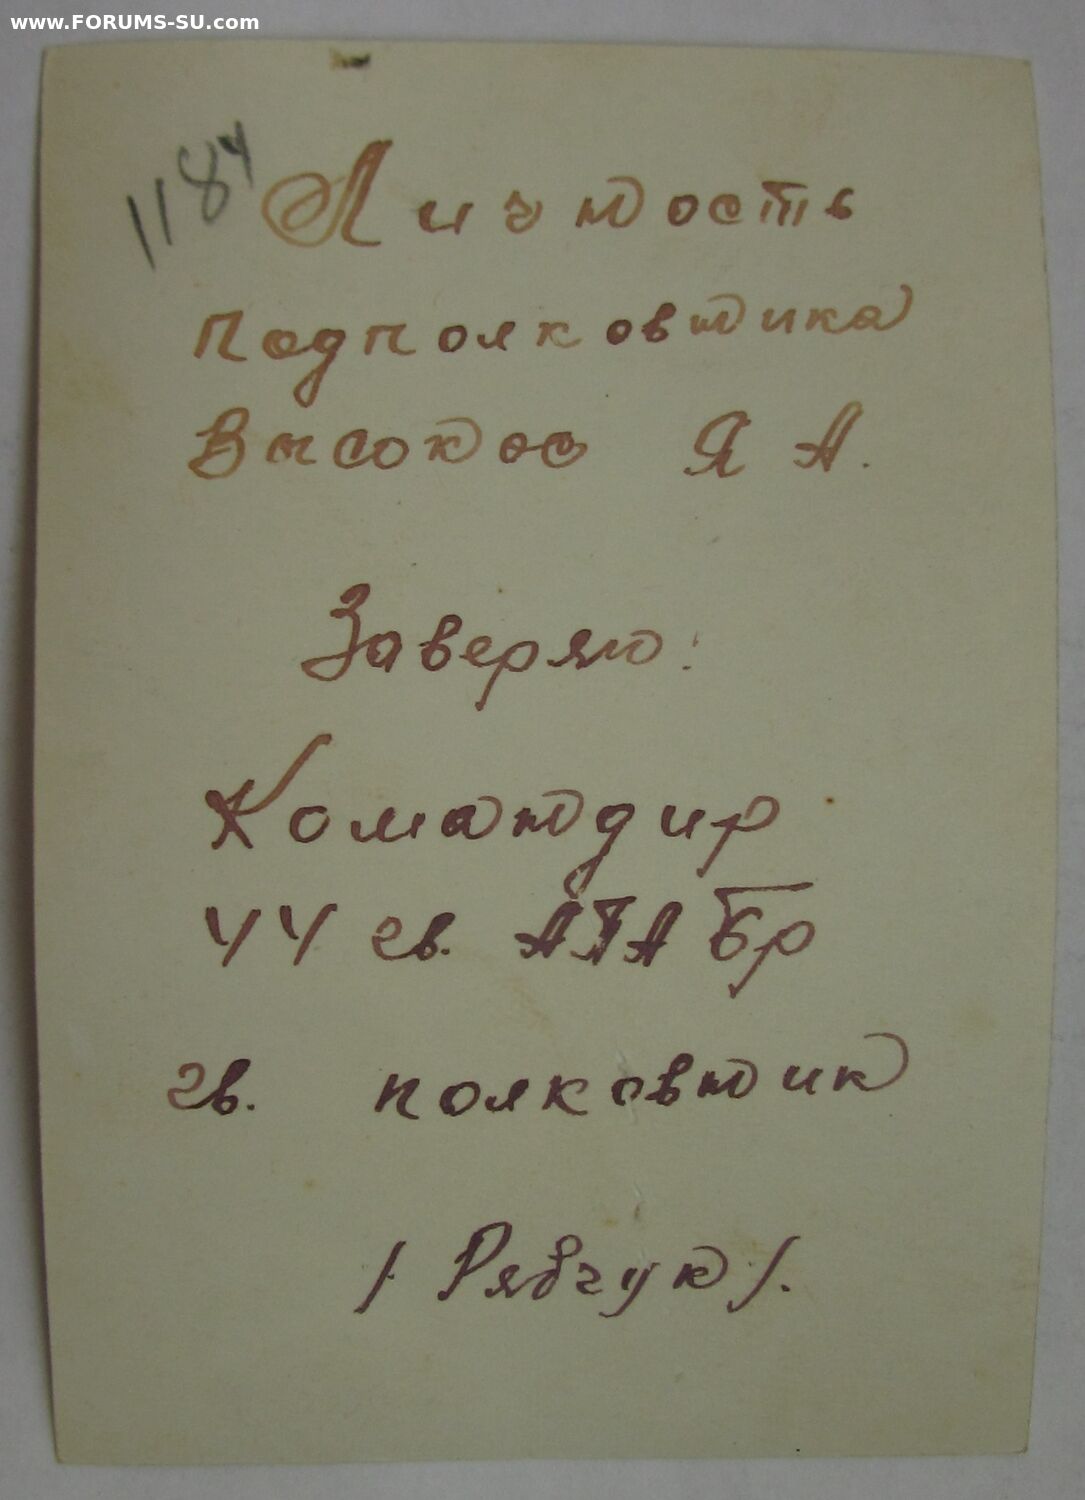 www.FORUMS-SU.com
1184
Личность
подполковника
Высокос Я А.
Заверяю:
Командир
44 гв. АПАБр
гв. полковник
/. Рябчук /.